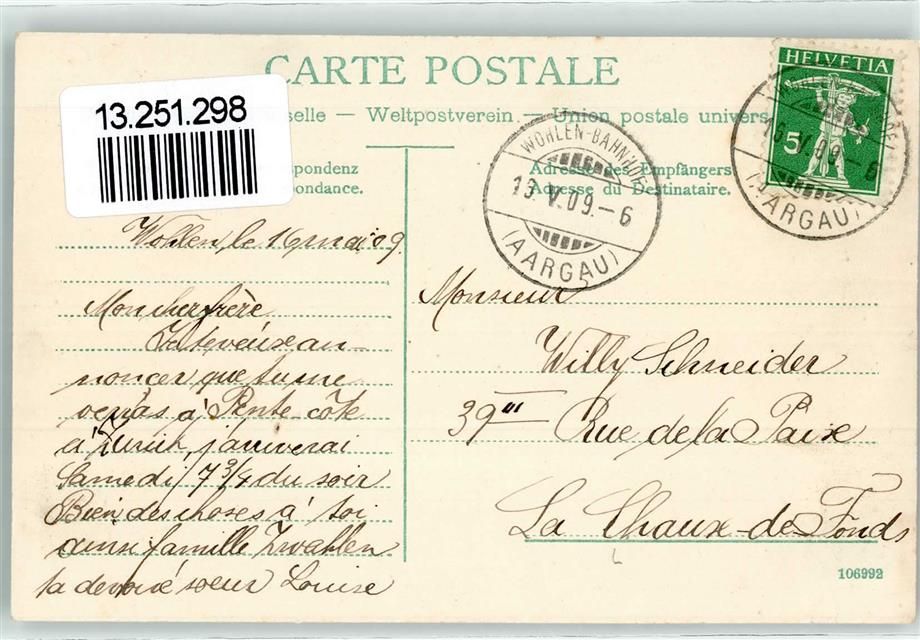 CARTE POSTALE
13.251.298
selle — Weltpostverein. — Union postale univers
pondenz
pondance.
Adresse des Empfängers
Adresse du Destinataire.
WOHLEN-BAHNHOF
13.V.09.–6
(AARGAU)
HELVETIA
5
13.V.09.–6
(AARGAU)
Wohlen, le 16 mai 09.
Mon cher frère
Je te veux an-
noncer que tu me
verras à Pente côte
à Zurich, j'arriverai
Samedi 7 3/4 du soir
Bien des choses à toi
ainsi famille Zwahlen
ta dévoué soeur Louise
Monsieur
Willy Schneider
39''' Rue de la Paix
La Chaux-de-Fonds
106992